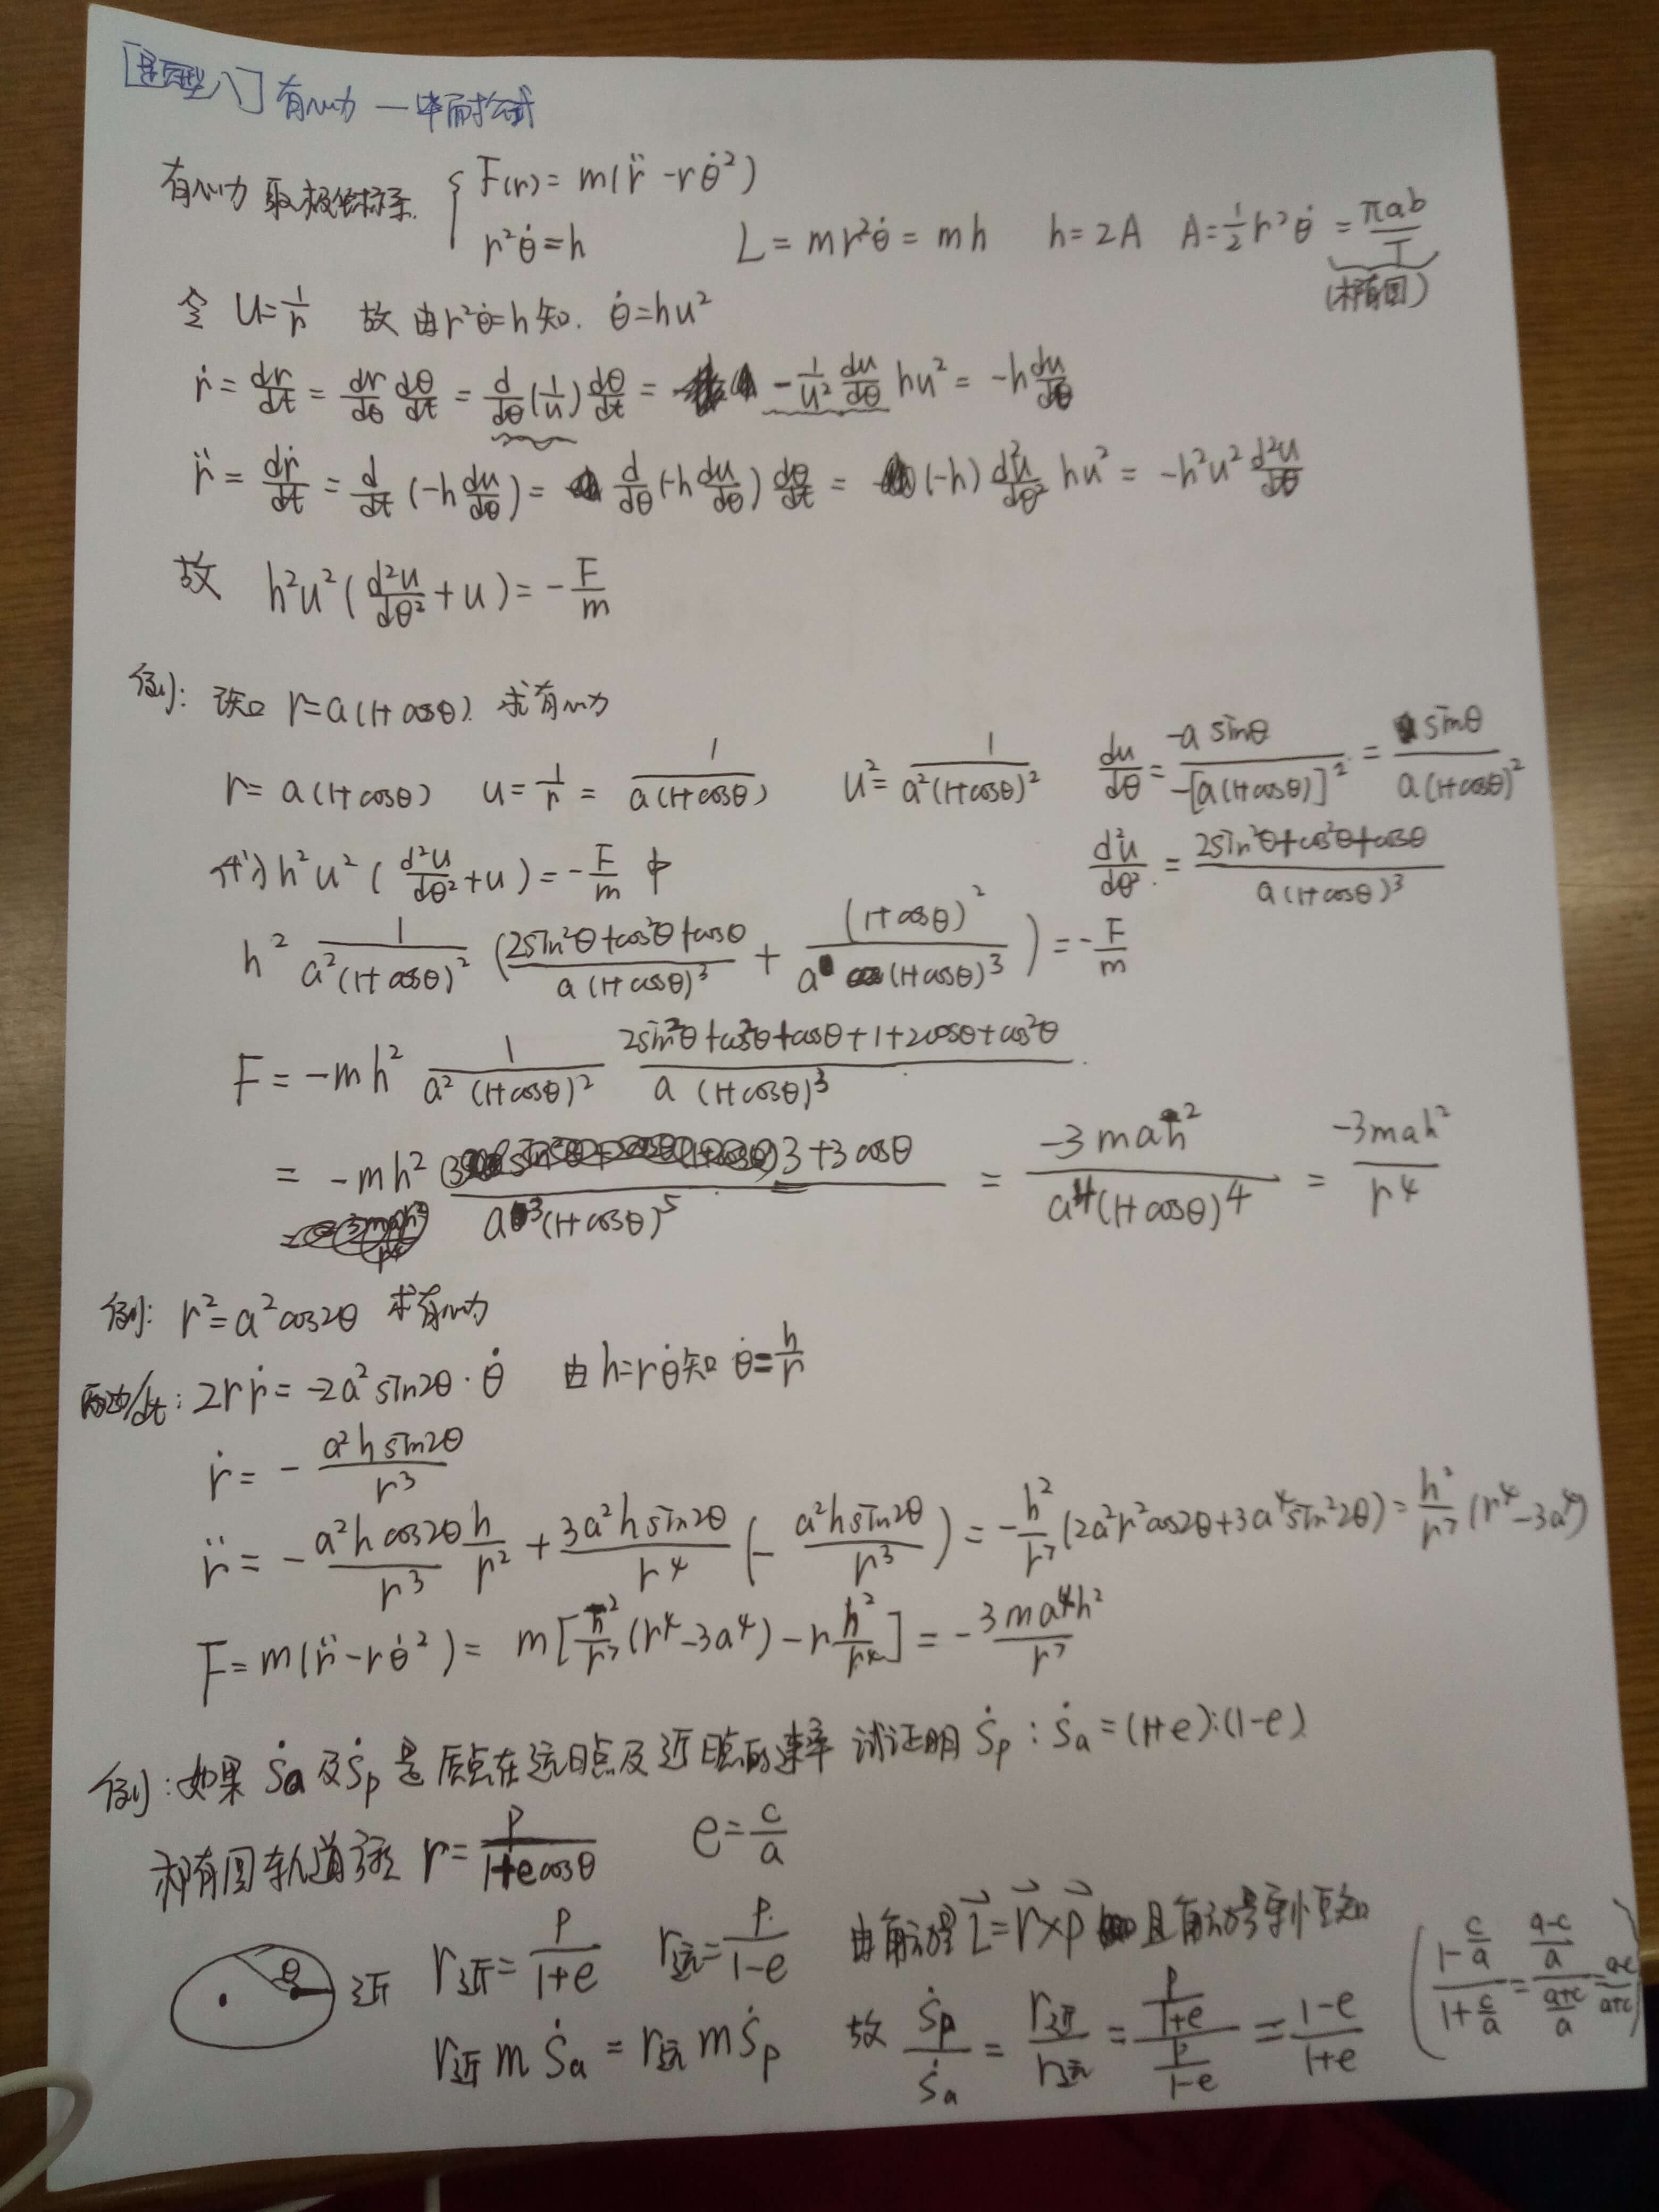 [题型八] 有心力 — 毕耐公式
有心力 取极坐标系. { F(r) = m(r̈ - rθ̇²)
r²θ̇ = h L = mr²θ̇ = mh h = 2A A = 1/2 r²θ̇ = πab/T
(椭圆)
令 u = 1/r 故 由 r²θ̇ = h 知. θ̇ = hu²
ṙ = dr/dt = dr/dθ dθ/dt = d/dθ (1/u) dθ/dt = - 1/u² du/dθ hu² = -h du/dθ
r̈ = dṙ/dt = d/dt (-h du/dθ) = d/dθ (-h du/dθ) dθ/dt = (-h) d²u/dθ² hu² = -h²u² d²u/dθ
故 h²u² (d²u/dθ² + u) = - F/m
例: 已知 r = a(1+cosθ). 求有心力
r = a(1+cosθ) u = 1/r = 1/(a(1+cosθ)) u² = 1/(a²(1+cosθ)²) du/dθ = -a sinθ/(-[a(1+cosθ)]²) = sinθ/(a(1+cosθ)²)
代入 h²u² (d²u/dθ² + u) = - F/m 中 d²u/dθ² = (2sin²θ+cos²θ+cosθ)/(a(1+cosθ)³)
h² 1/(a²(1+cosθ)²) ((2sin²θ+cos²θ+cosθ)/(a(1+cosθ)³) + (1+cosθ)²/(a(1+cosθ)³)) = - F/m
F = -mh² 1/(a²(1+cosθ)²) (2sin²θ+cos²θ+cosθ+1+2cosθ+cos²θ)/(a(1+cosθ)³)
= -mh² (3+3cosθ)/(a³(1+cosθ)⁵) = -3mah²/(a⁴(1+cosθ)⁴) = -3mah²/r⁴
例: r² = a²cos2θ 求有心力
两边/dt: 2rṙ = -2a²sin2θ·θ̇ 由 h = rθ̇ 知 θ̇ = h/r
ṙ = - a²h sin2θ/r³
r̈ = - a²h cos2θ/r³ h/r² + 3a²h sin2θ/r⁴ (- a²h sin2θ/r³) = - h²/r⁷ (2a²r²cos2θ+3a⁴sin²2θ) = h²/r⁷ (r⁴-3a⁴)
F = m(r̈-rθ̇²) = m[h²/r⁷ (r⁴-3a⁴) - r h²/r⁴] = - 3ma⁴h²/r⁷
例: 如果 ṡa 及 ṡp 是 质点在远日点及近日点的速率 试证明 ṡp : ṡa = (1+e):(1-e)
椭圆轨道方程 r = p/(1+ecosθ) e = c/a
θ 近 r近 = p/(1+e) r远 = p/(1-e) 由角动量 L⃗ = r⃗×p⃗ 且角动量守恒知
r近 m ṡa = r远 m ṡp 故 ṡp/ṡa = r近/r远 = (p/(1+e))/(p/(1-e)) = (1-e)/(1+e) ((1-c/a)/(1+c/a) = ((a-c)/a)/((a+c)/a) = (a-c)/(a+c))